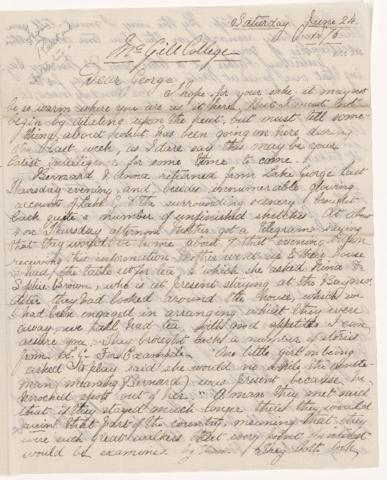 Saturday June 24
McGill College
Dear George
I hope for your sake it may not
be so warm where you are as it is here, but I must not
begin by dilating upon the heat, but must tell some-
thing about what has been going on here during
the last week, as I dare say this may be your
latest intelligence for some time to come.
Bernard & Anna returned from Lake George last
Thursday evening, and, beside innumerable glowing
accounts of Lake & the surrounding scenery, brought
back quite a number of unfinished sketches. At about
on Thursday afternoon Mother got a telegram saying
that they would be home about 7 that evening. Upon
receiving this information Mother went up to their house
& had the table set for tea, to which she asked Nina &
Brown, who is at present staying at the Baynes.
After they had looked around the house, which we
had been engaged in arranging whilst they were
away, we all had tea with good appetites I can
assure you. They brought back a number of stories
from L. G. For Example. "One little girl on being
asked to play said she would no while the white-
man meaning (Bernard) were present because he
knocked spots out of her." A man they met said
that if they stayed much longer there they would
ruin that part of the country, meaning that they
were such great walkers that every point of interest
would be examined by them. They both look